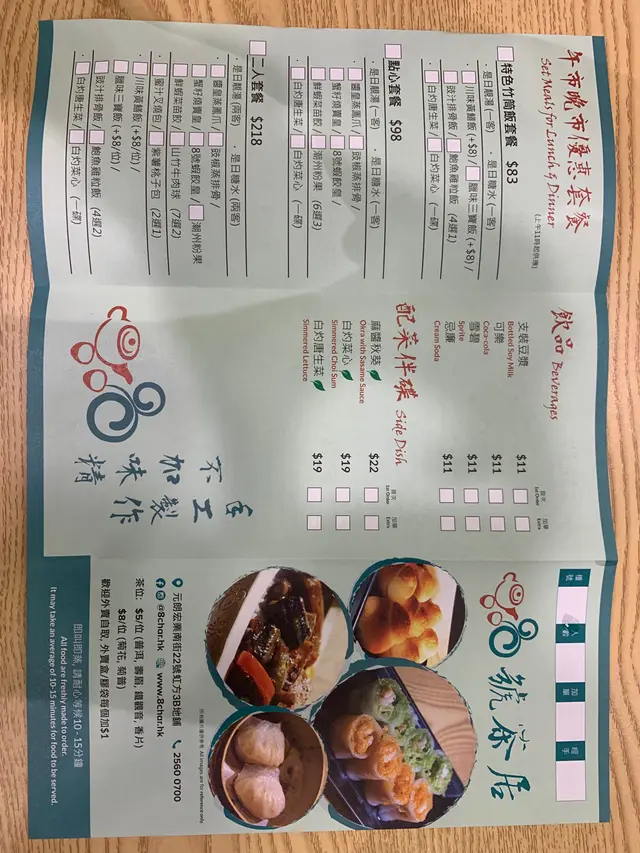 午市晚市優惠套餐
Set Meals for Lunch & Dinner
(上午11時起供應)
特色竹筒飯套餐 $83
．是日靚湯 (一客) ．是日糖水 (一客)
．川味黃鱔飯 (+$8) / 臘味三寶飯 (+$8) /
豉汁排骨飯 / 鮑魚雞粒飯 (4選1)
．白灼唐生菜 / 白灼菜心 (一碟)
點心套餐 $98
．是日靚湯 (一客) ．是日糖水 (一客)
．醬皇蒸鳳爪 / 豉椒蒸排骨 /
蟹籽燒賣皇 / 8號蝦餃皇 /
鮮蝦菜苗餃 / 潮州粉果 (6選3)
．白灼唐生菜 / 白灼菜心 (一碟)
二人套餐 $218
．是日靚湯 (兩客) ．是日糖水 (兩客)
．醬皇蒸鳳爪 / 豉椒蒸排骨 /
蟹籽燒賣皇 / 8號蝦餃皇 / 潮州粉果
鮮蝦菜苗餃 / 山竹牛肉球 (7選2)
．蜜汁叉燒包 / 紫薯桃子包 (2選1)
．川味黃鱔飯 (+$8/位) /
臘味三寶飯 (+$8/位) /
豉汁排骨飯 / 鮑魚雞粒飯 (4選2)
．白灼唐生菜 / 白灼菜心 (一碟)
飲品 Beverages
首次 加單
1st Order Extra
支裝豆漿 $11
Bottled Soy Milk
可樂 $11
Coca-cola
雪碧 $11
Sprite
忌廉 $11
Cream Soda
配菜伴碟 Side Dish
首次 加單
1st Order Extra
麻醬秋葵 $22
Okra with Sesame Sauce
白灼菜心 $19
Simmered Choi Sum
白灼唐生菜 $19
Simmered Lettuce
手工作
不加味精
檯號 人數 加單 經手
號茶居
所有圖片僅供參考 All images are for reference only.
元朗宏業南街22號虹方3B地舖 2560 0700
@8char.hk www.8char.hk
茶位: $5/位 (普洱, 壽眉, 鐵觀音, 香片)
$8/位 (菊花, 菊普)
歡迎外賣自取, 外賣盒/膠袋每個加$1
即叫即蒸, 請耐心等候10 - 15分鐘
All food are freshly made to order.
It may take an average of 10-15 minutes for food to be served.